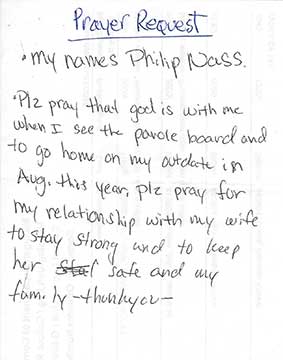 Prayer Request
• My names Philip Nass.
• Plz pray that god is with me
when I see the parole board and
to go home on my outdate in
Aug. this year, plz pray for
my relationship with my wife
to stay strong and to keep
her safe and my
family - thankyou -